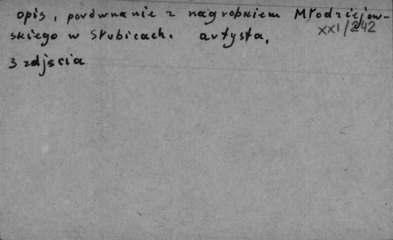 opis, porównanie z nagrobkiem Młodziejow-
skiego w Słubicach. artysta.
XXI/242
3 zdjęcia